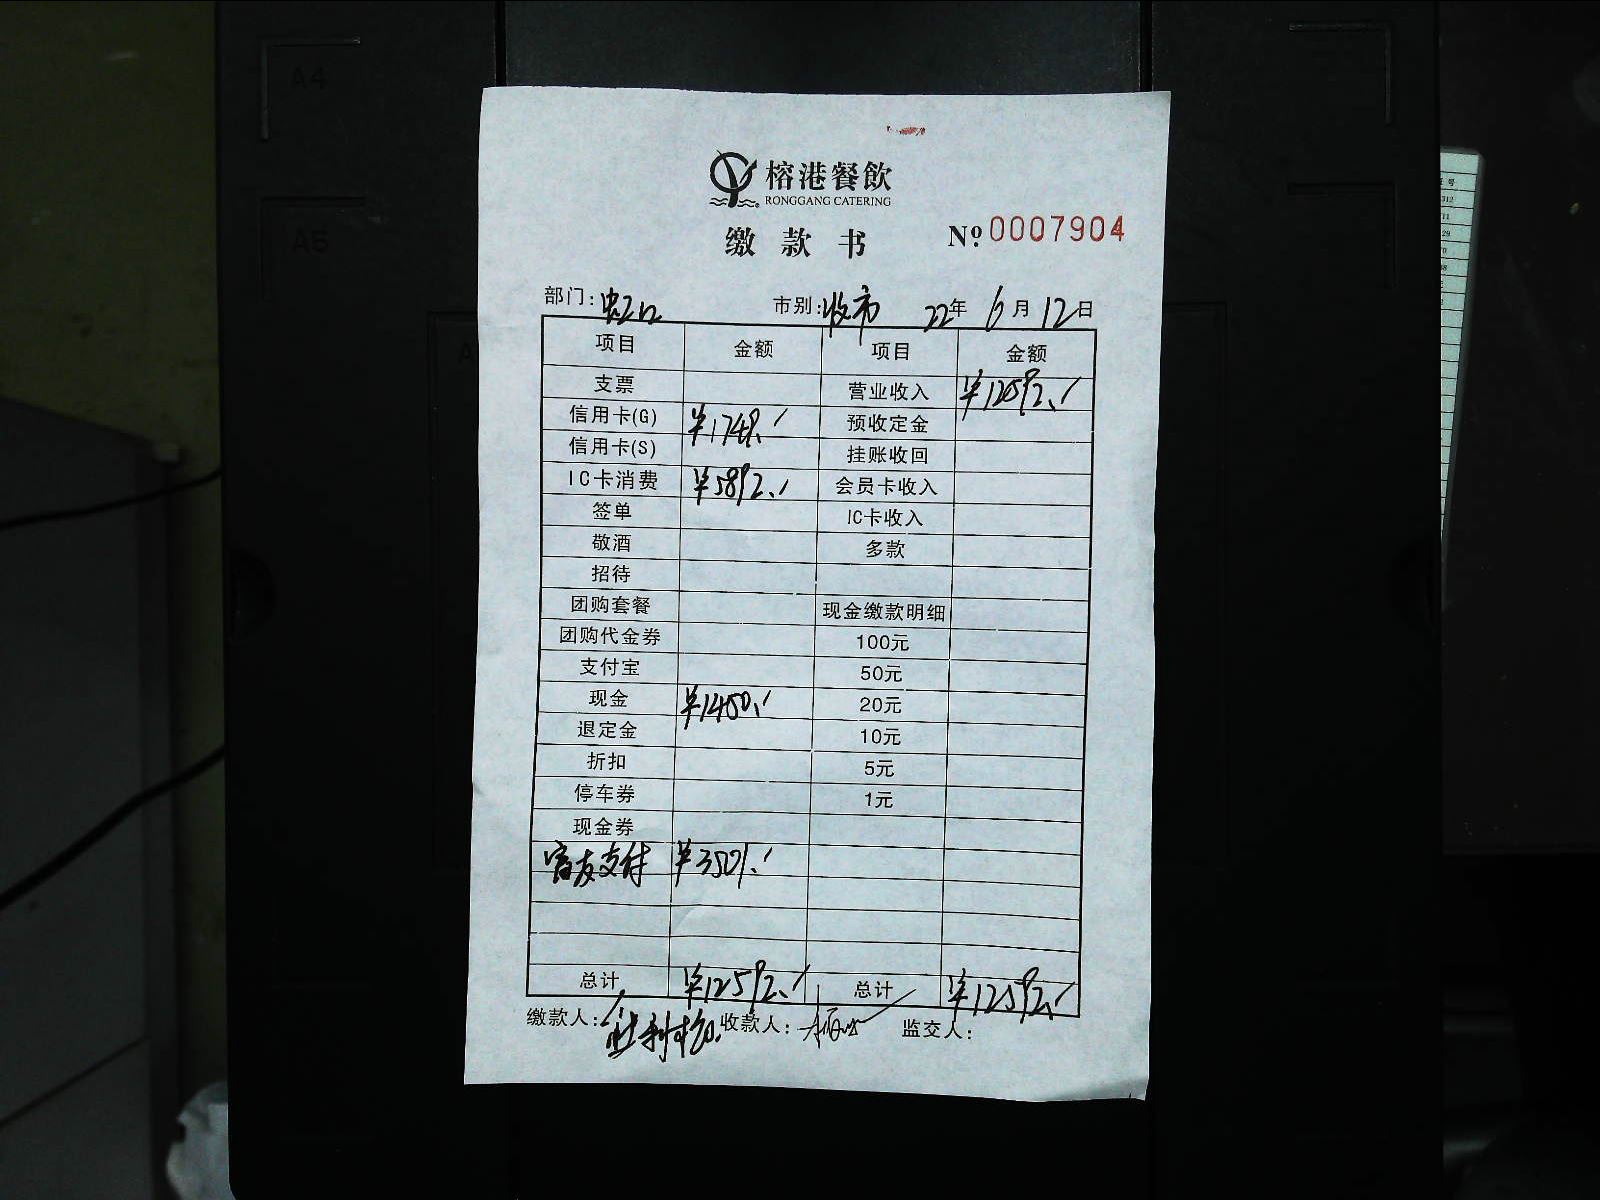 A4
A5
榕港餐飲
RONGGANG CATERING
缴款书 Nº 0007904
部门: 虹口 市别: 收市 22年 6月 12日
项目 金额 项目 金额
支票 营业收入 ¥12592.
信用卡(G) ¥1749. 预收定金
信用卡(S) 挂账收回
IC卡消费 ¥5892. 会员卡收入
签单 IC卡收入
敬酒 多款
招待
团购套餐 现金缴款明细
团购代金券 100元
支付宝 50元
现金 ¥1450. 20元
退定金 10元
折扣 5元
停车券 1元
现金券
富友支付 ¥3501.
总计 ¥12592. 总计 ¥12592.
缴款人: 收款人: 监交人: